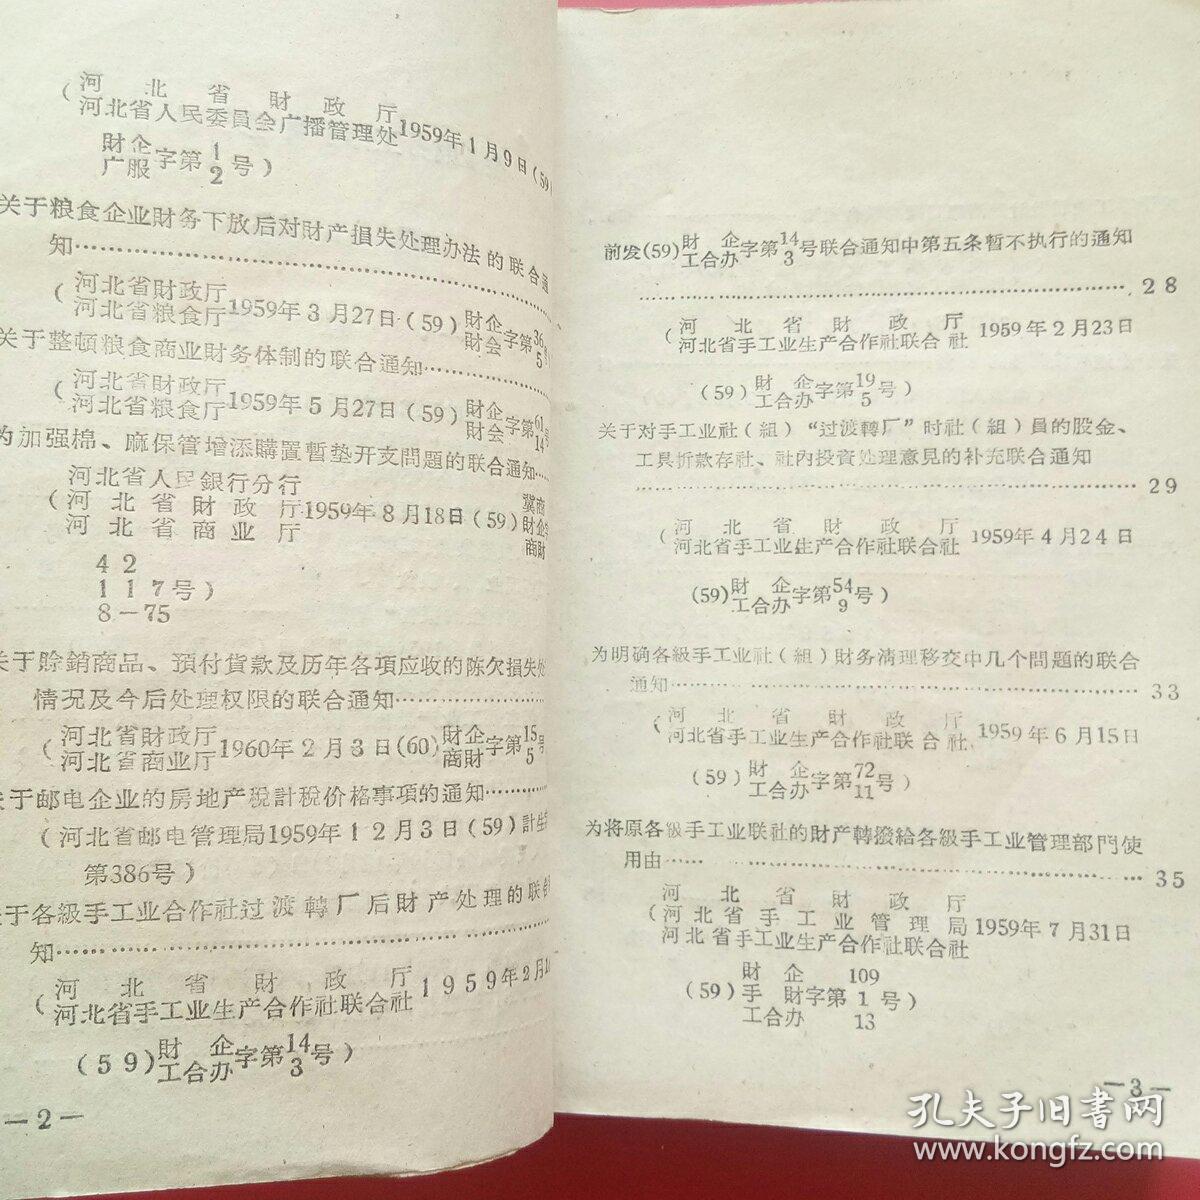 (河北省財政厅
河北省人民委員会广播管理处1959年1月9日(59
財企
广服字第1
2号)
关于粮食企业財务下放后对財产損失处理办法的联合通
知……………………
(河北省財政厅
河北省粮食厅1959年3月27日(59)財企
財会字第36
5
关于整頓粮食商业財务体制的联合通知…………
(河北省財政厅
河北省粮食厅1959年5月27日(59)財企
財会字第61
14号
为加强棉、麻保管增添購置暫垫开支問題的联合通知……
河北省人民銀行分行
(河北省財政厅1959年8月18日(59)
河北省商业厅
冀商
財企字
商財
42
117号)
8-75
关于賒銷商品、預付貨款及历年各項应收的陈欠損失处
情况及今后处理权限的联合通知……………
(河北省財政厅
河北省商业厅1960年2月3日(60)財企
商財字第15
5号
关于邮电企业的房地产税計税价格事項的通知………
(河北省邮电管理局1959年12月3日(59)計生
第386号)
关于各級手工业合作社过渡轉厂后財产处理的联合
知……………………
(河北省財政厅
河北省手工业生产合作社联合社1959年2月
(59)財企
工合办字第14
3号)
—2—
前发(59)財企
工合办字第14
3号联合通知中第五条暫不执行的通知
……………………28
(河北省財政厅
河北省手工业生产合作社联合社1959年2月23日
(59)財企
工合办字第19
5号)
关于对手工业社(組)“过渡轉厂”时社(組)員的股金、
工具折款存社、社內投資处理意見的补充联合通知
……………………29
(河北省財政厅
河北省手工业生产合作社联合社1959年4月24日
(59)財企
工合办字第54
9号)
为明确各級手工业社(組)財务清理移交中几个問題的联合
通知……………………33
(河北省財政厅
河北省手工业生产合作社联合社1959年6月15日
(59)財企
工合办字第72
11号)
为将原各級手工业联社的財产轉撥給各級手工业管理部門使
用由……………………35
河北省財政厅
(河北省手工业管理局1959年7月31日
河北省手工业生产合作社联合社
財企 109
(59)手財字第1号)
工合办 13
—3—
孔夫子旧書网
www.kongfz.com